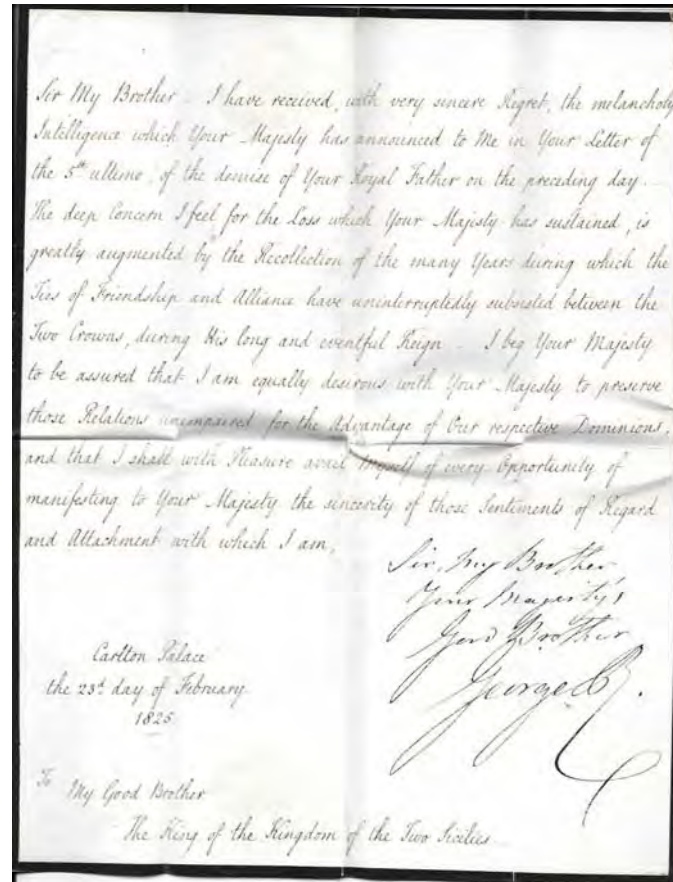 Sir My Brother. I have received, with very sincere Regret, the melancholy
Intelligence which Your Majesty has announced to Me in Your Letter of
the 5th ultimo, of the demise of Your Royal Father on the preceding day.
The deep Concern I feel for the Loss which Your Majesty has sustained, is
greatly augmented by the Recollection of the many Years during which the
Ties of Friendship and Alliance have uninterruptedly subsisted between the
Two Crowns, during His long and eventful Reign. I beg Your Majesty
to be assured that I am equally desirous with Your Majesty to preserve
those Relations unimpaired for the Advantage of Our respective Dominions,
and that I shall with Pleasure avail Myself of every Opportunity of
manifesting to Your Majesty the sincerity of those Sentiments of Regard
and Attachment with which I am,
Sir, My Brother
Your Majesty's
Good Brother
George R.
Carlton Palace
the 23d day of February
1825
To My Good Brother
The King of the Kingdom of the Two Sicilies